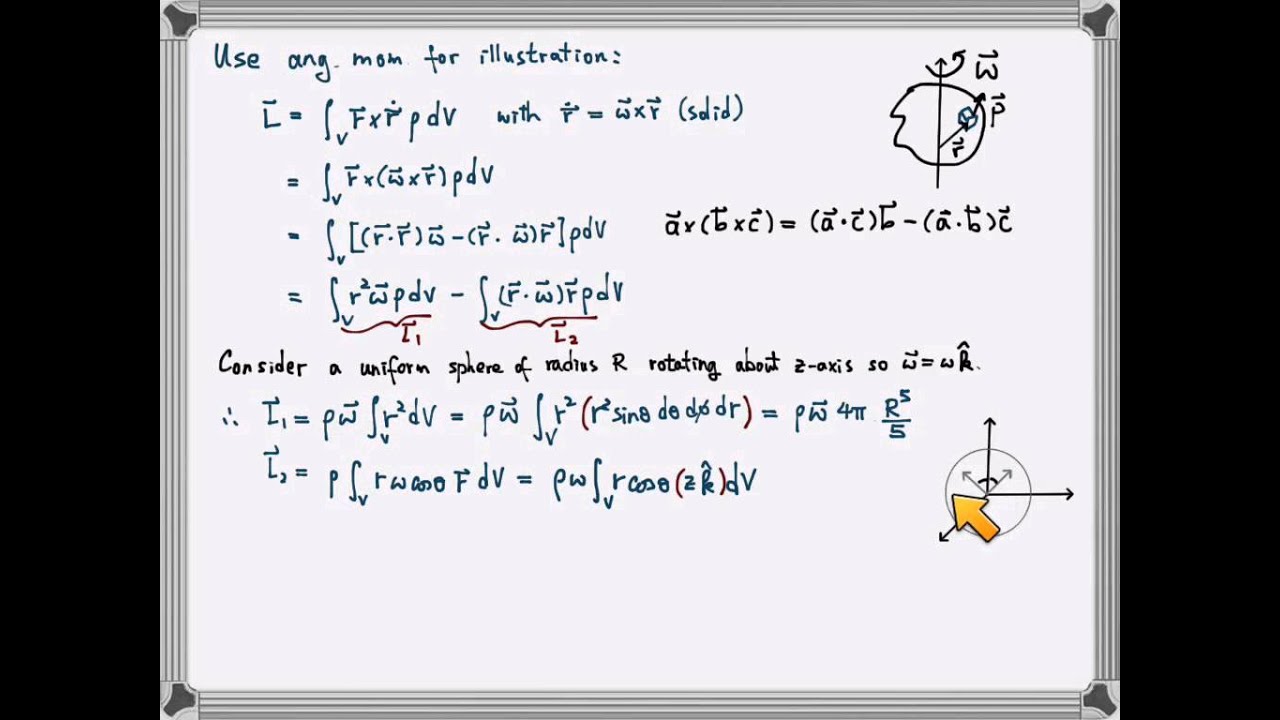 Use ang. mom for illustration:
L⃗ = ∫_V r⃗ × ṙ⃗ ρ dV with ṙ⃗ = ω⃗ × r⃗ (solid)
= ∫_V r⃗ × (ω⃗ × r⃗) ρ dV
= ∫_V [(r⃗·r⃗)ω⃗ − (r⃗·ω⃗)r⃗] ρ dV
a⃗ × (b⃗ × c⃗) = (a⃗·c⃗)b⃗ − (a⃗·b⃗)c⃗
= ∫_V r² ω⃗ ρ dV − ∫_V (r⃗·ω⃗) r⃗ ρ dV
L⃗₁ L⃗₂
Consider a uniform sphere of radius R rotating about z-axis so ω⃗ = ω k̂.
∴ L⃗₁ = ρω⃗ ∫_V r² dV = ρω⃗ ∫_V r² (r² sinθ dθ dϕ dr) = ρω⃗ 4π R⁵/5
L⃗₂ = ρ ∫_V r ω cosθ r⃗ dV = ρω ∫_V r cosθ (z k̂) dV
ω⃗
p⃗
r⃗